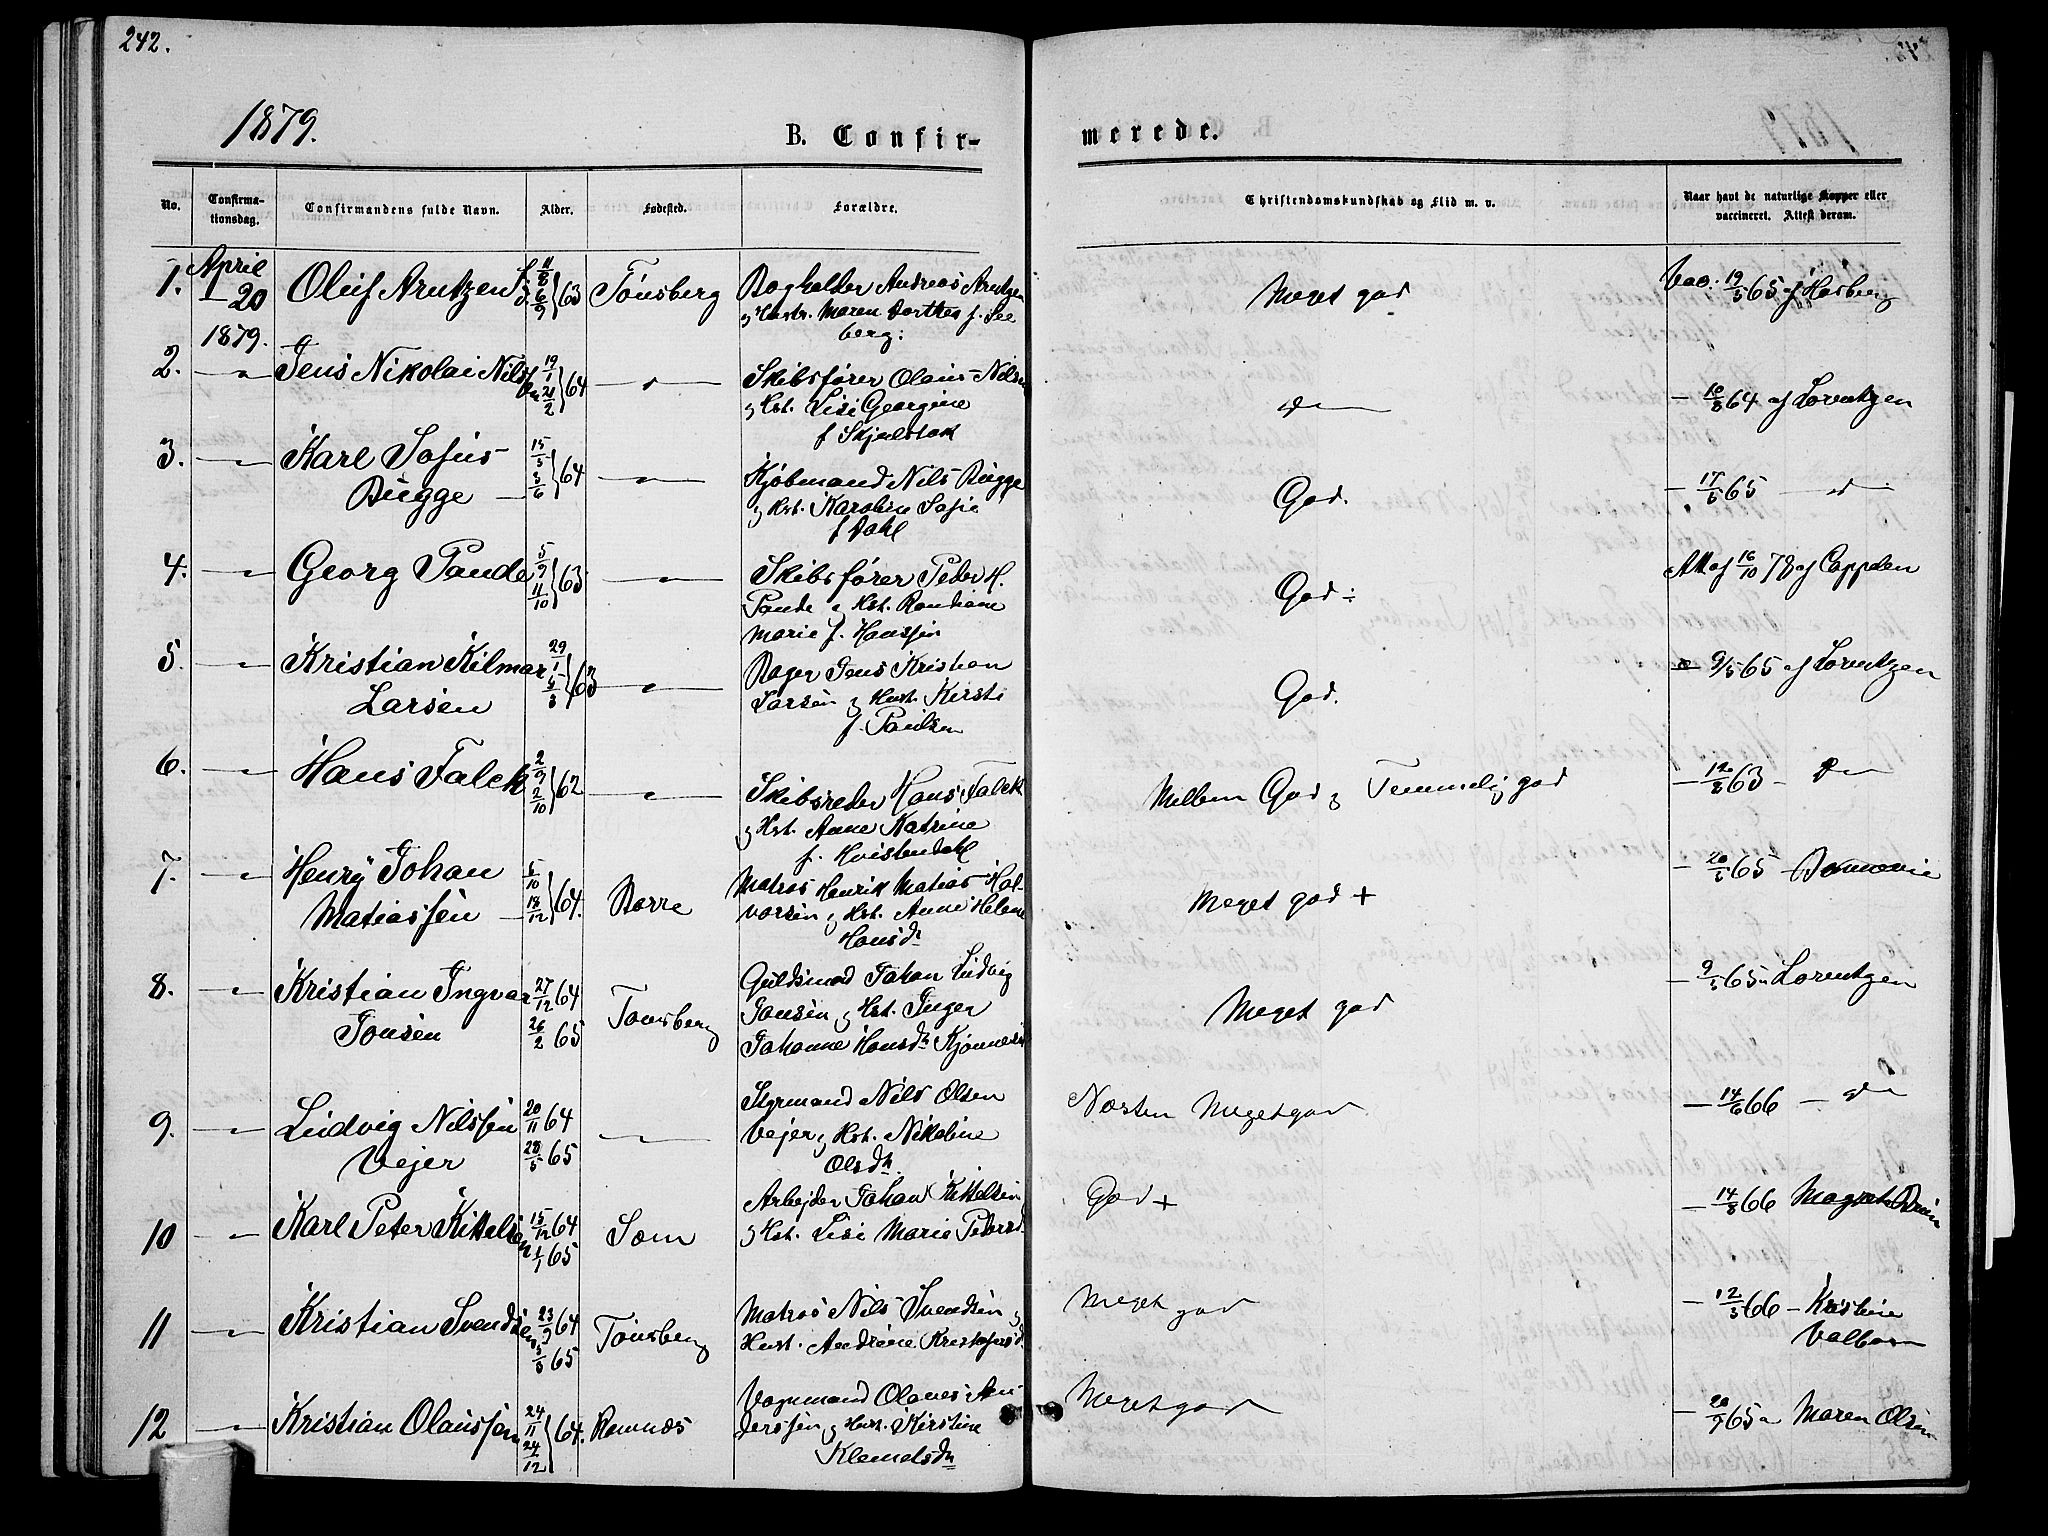 242.
1879.
B. Confir-
merede.
No.
Confirma-
tionsdag.
Confirmandens fulde Navn.
Alder.
Fødested.
Forældre.
Christendomskundskab og Flid m. v.
Naar havt de naturlige Kopper eller
vaccineret. Attest derom.
1. April 20 1879. Oluf Arntzen f. 11/8 d. 6/9 63 Tönsberg
Bogholder Andreas Arntzen
og Hustr. Maren Dorthea f. See
berg.
Meget god
Vac. 19/5 65 af Hasberg
2. — " Jens Nikolai Nils
sen 19/1 21/2 64 — " —
Skibsfører Olaus Nilsen
og Hst. Lisi Georgine
f Skjelstok
d —
— 10/8 64 af Lorentzen
3. — " — Karl Sofus
Bugge — 15/5 64 — " —
Kjøbmand Nils Bugge
og Hst. Karoline Sofie
f Dahl
God.
— 17/5 65 — d —
4. — " — Georg Paude 5/9 11/10 63 — " —
Skibsfører Peder H.
Paude og Hst. Randiane
Marie f. Hanssen
God ÷
Att af 16/10 78 af Cappelen
5. — " — Kristian Hilmar
Larsen 29/1 63 — " —
Bager Jens Kristian
Larsen og Hust. Kirsti
f. Paulsen
God.
9/5 65 af Lorentzen
6. — " — Hans Falck 2/9 2/10 62 — " —
Skibsreder Hans Falck
og Hst. Anne Katrine
f. Hvistendahl
Mellem God og Temmelig god
— 12/8 63 — d —
7. — " — Henry Johan
Matiassen — 5/10 18/12 64. Borre
Matros Henrik Matias Hal-
vorsen og Hst. Anne Helene
Hansd.
Meget god +
— 20/5 65
8. — " — Kristian Ingvar
Jonsen 27/12 64 26/2 65 Tonsberg
Guldsmed Johan Ludvig
Jonsen og Hst. Inger
Johanne Hansd.
Meget god
— 9/5 65 " Lorentzen
9. — " — Ludvig Nilssen
Vejer 20/11 64 28/5 65 — " —
Styrmand Nils Olsen
Vejer og Hst. Nikoline
Olsd.
Næsten Meget god
— 14/6 66 — d —
10 — " — Karl Peter Kittels
en 15/12 64 1/1 65 Sem
Arbejder Johan Kittelsen
og Hst. Lisi Marie Pedersd.
God +
— 14/8 66
11 — " — Kristian Svends
en 23/9 64 65 Tönsberg
Matros Nils Svendsen og
Hust. Andrine Kristofersd.
Meget god
— 12/5 66 — Kristine
Valborn
12 — " — Kristian Olaussen 24/11 24/12 64. Ramnæs
Vognmand Olaves An-
derssen og Hust. Kirstine
Klemetsd.
Meget god
— 20/9 65 " Maren Olsen